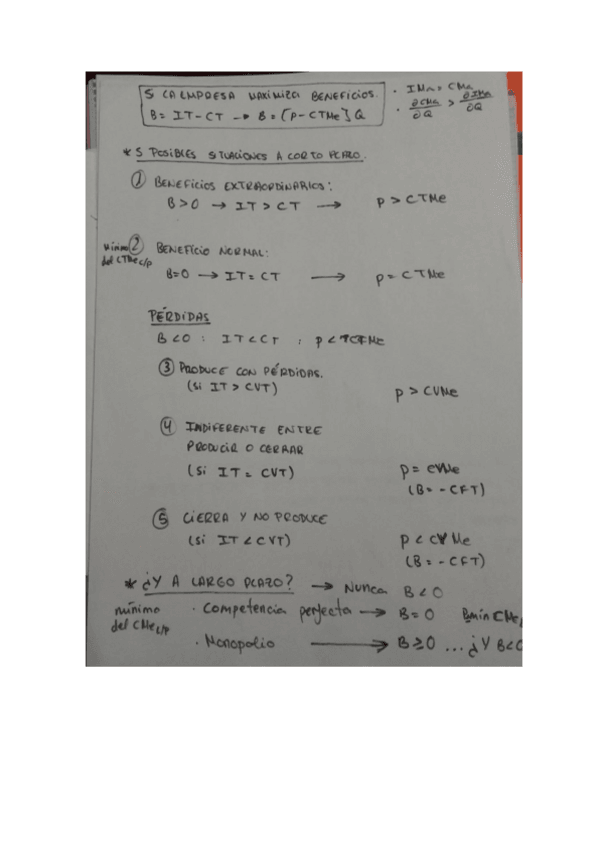 SI LA EMPRESA MAXIMIZA BENEFICIOS.
B = IT - CT → B = [P - CTMe] Q
· IMa = CMa
· ∂CMa/∂Q > ∂IMa/∂Q
* 5 POSIBLES SITUACIONES A CORTO PLAZO.
① BENEFICIOS EXTRAORDINARIOS:
B > 0 → IT > CT → p > CTMe
Mínimo del CTMe c/p
② BENEFICIO NORMAL:
B = 0 → IT = CT → p = CTMe
PÉRDIDAS
B < 0 : IT < CT ; p <
③ PRODUCE CON PÉRDIDAS.
(Si IT > CVT) p > CVMe
④ INDIFERENTE ENTRE
PRODUCIR O CERRAR
(Si IT = CVT) p = CVMe
(B = - CFT)
⑤ CIERRA Y NO PRODUCE
(Si IT < CVT) p < CVMe
(B = - CFT)
* ¿Y A LARGO PLAZO? → Nunca B < 0
mínimo
del CMe c/p
· Competencia perfecta → B = 0 CMe
· Monopolio → B ≥ 0 ... ¿Y B < 0